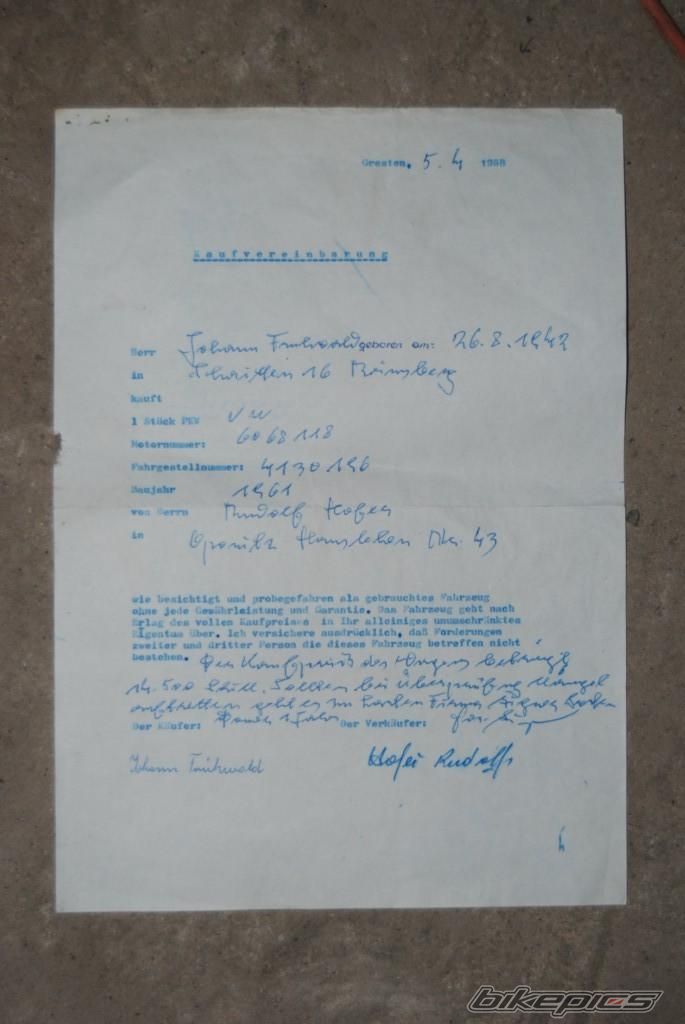 Gresten, 5. 4 1968
Kaufvereinbarung
Herr Johann Fruhwald geboren am: 26.8.1942
in 16
kauft
1 Stück PKW VW
Motornummer: 6068118
Fahrgestellnummer: 4130196
Baujahr 1961
von Herrn Rudolf Hofer
in Opponitz Nr. 43
wie besichtigt und probegefahren als gebrauchtes Fahrzeug
ohne jede Gewährleistung und Garantie. Das Fahrzeug geht nach
Erlag des vollen Kaufpreises in Ihr alleiniges unumschränktes
Eigentum über. Ich versichere ausdrücklich, daß Forderungen
zweiter und dritter Person die dieses Fahrzeug betreffen nicht
bestehen. Der Kaufpreis des Wagens beträgt
500 Schill. Sollten bei Überprüfung Mängel
auftretten geht es zu Firma
Der Käufer: Der Verkäufer:
Johann Fruhwald Hofer Rudolf
bikepics